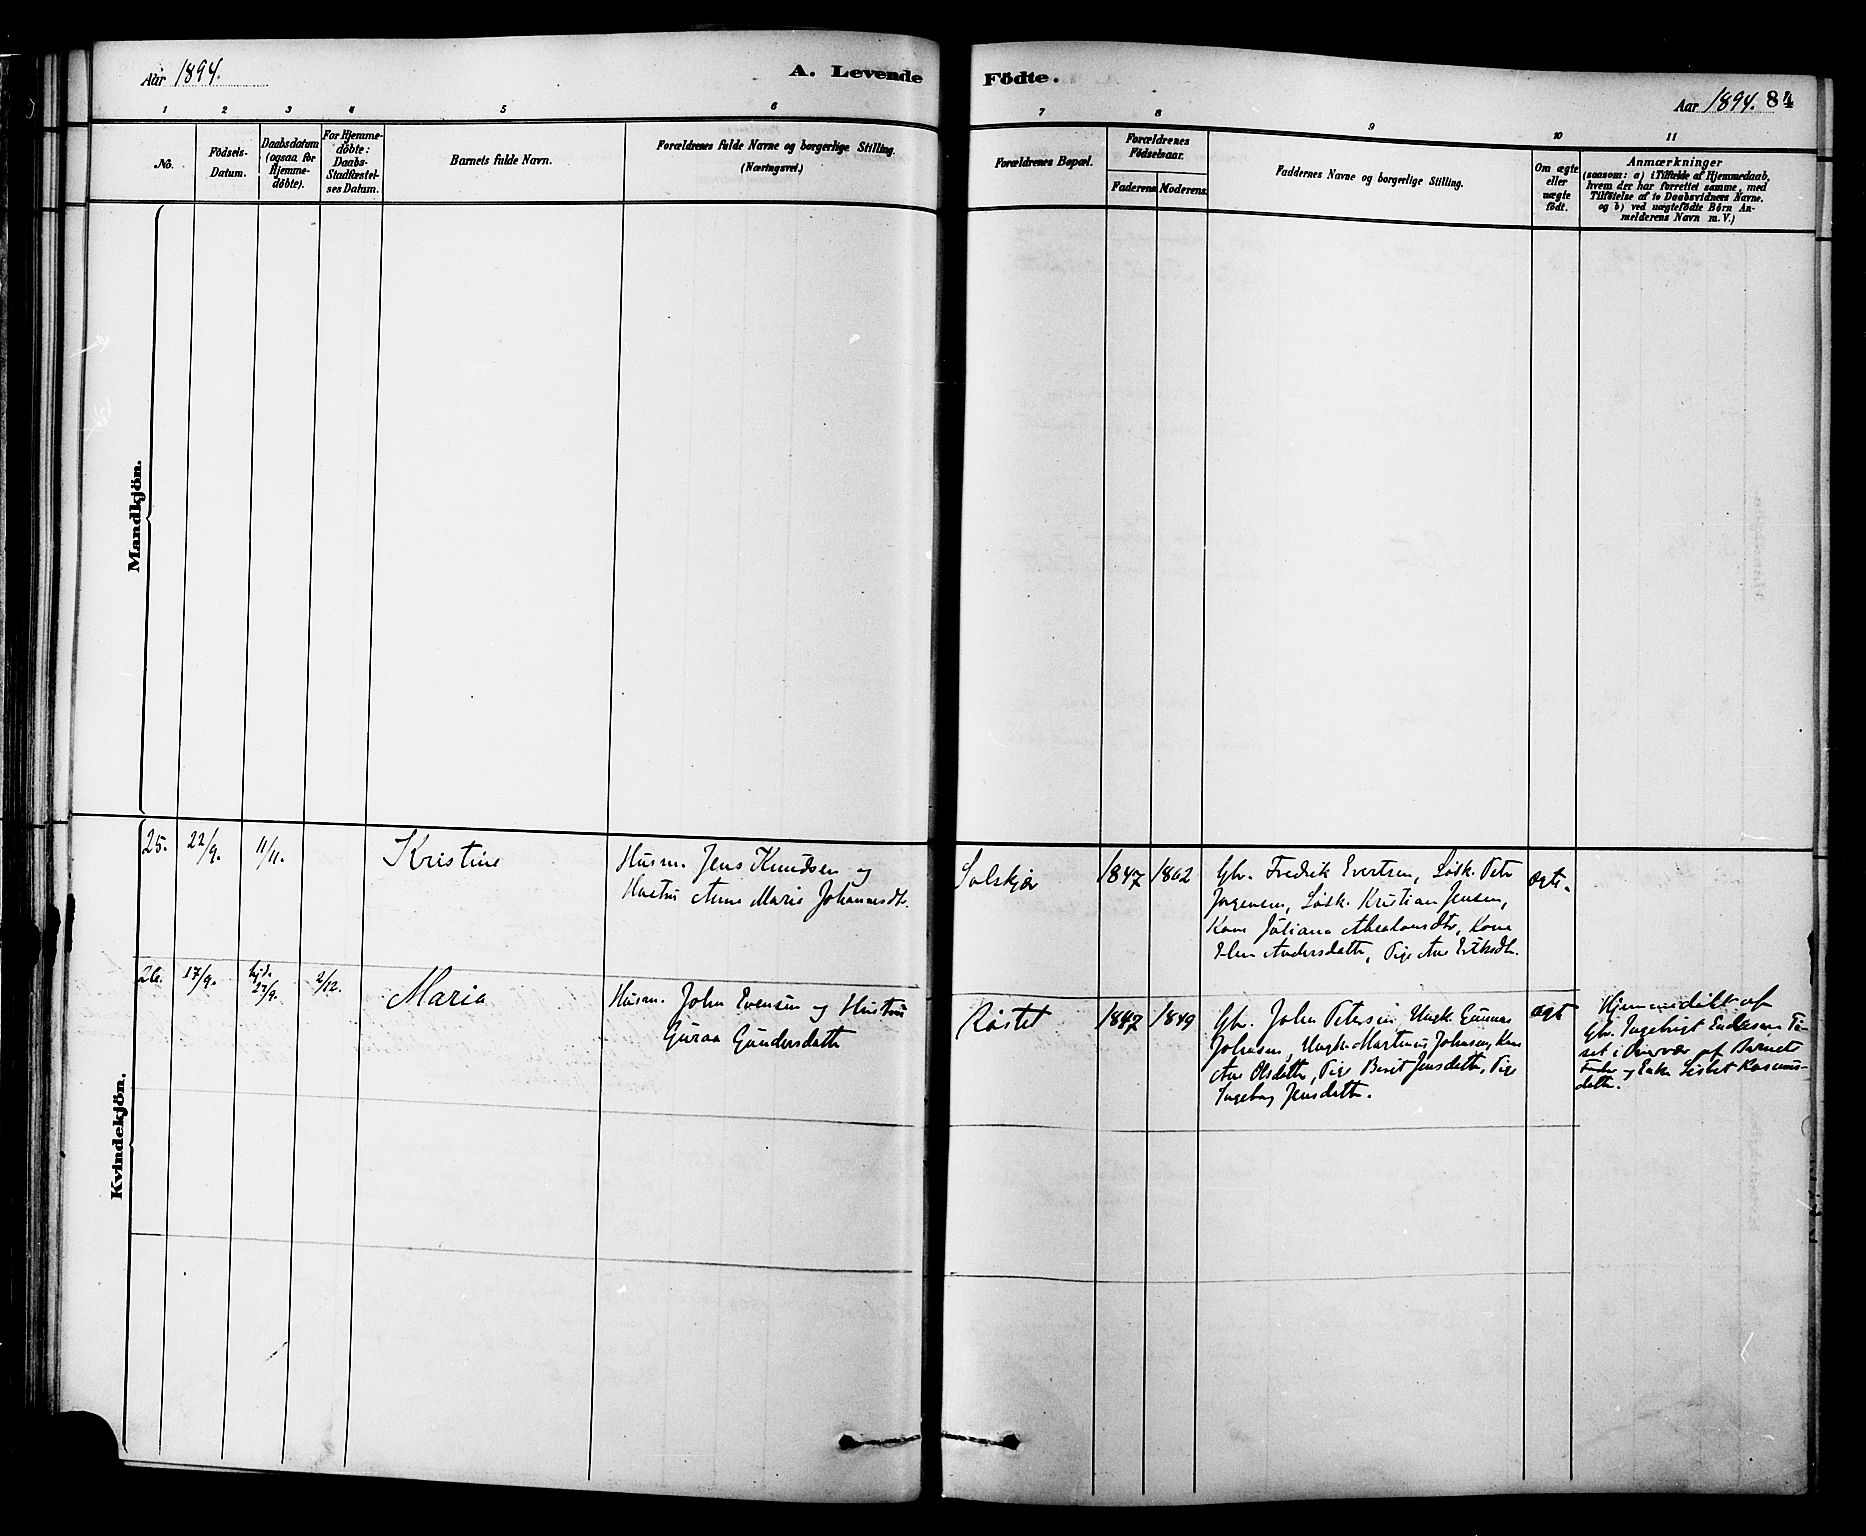 Aar 1894.
A. Levende
Födte.
Aar 1894. 84
1 2 3 4 5 6
7 8 9 10 11
No.
Födsels-
Datum.
Daabsdatum
(ogsaa for
Hjemme-
döbte).
For Hjemme-
döbte:
Daabs-
Stadfæstel-
ses Datum.
Barnets fulde Navn.
Forældrenes fulde Navne og borgerlige Stilling.
(Næringsvei.)
Forældrenes Bopæl.
Forældrenes
Födselsaar.
Faderens Moderens.
Faddernes Navne og borgerlige Stilling.
Om ægte
eller
uægte
födt.
Anmærkninger
(saasom: a) i Tilfælde af Hjemmedaab,
hvem der har forrettet samme, med
Tilföielse af to Daabsvidners Navne.
og b) ved uægtefödte Börn An-
melderens Navn m. V.)
Mandkjön.
Kvindekjön.
25. 22/9. 11/11.
Kristine
Husm. Jens Knudsen og
Hustru Anne Marie Johannesdtr.
Solskjær
1847 1862
Gbr. Fredrik Evertsen, Løsk. Peter
Jørgensen, Løsk. Kristian Jensen,
Kone Juliana Absalonsdtr, Kone
Elen Andersdatter, Pige Ane
ægte.
26. 17/9. hjd. 2/12.
27/9.
Maria
Husm. John Evensen og Hustru
Guraa Gundersdatter
Røstet
1847 1849
Gbr. John Petersen, Ungk. Gunnar
Johnsen, Ungk. Martinus Johnsen, Kone
Ane Olsdatter, Pige Berit Jensdatter, Pige
Ingeborg Jensdatter.
ægt
Hjemmedöbt af
Gbr. Ingebrigt Endresen
set i Overvær af Barnets
Fader og Enke Lisbet Rasmus-
datter.